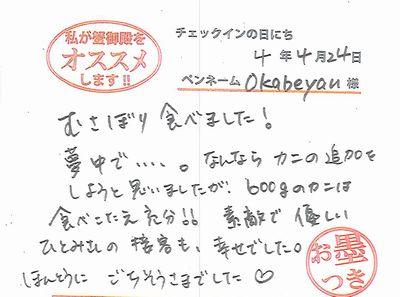 私が蟹御殿を
オススメ
します!!
チェックインの日にち
4年4月24日
ペンネーム Okabeyan 様
むさぼり食べました!
夢中で....。なんなら カニの追加を
しようと思いましたが、600gのカニは
食べごたえ充分!! 素敵で優しい
ひとみさんの接客も、幸せでした。
ほんとうに ごちそうさまでした♡
お墨
つき